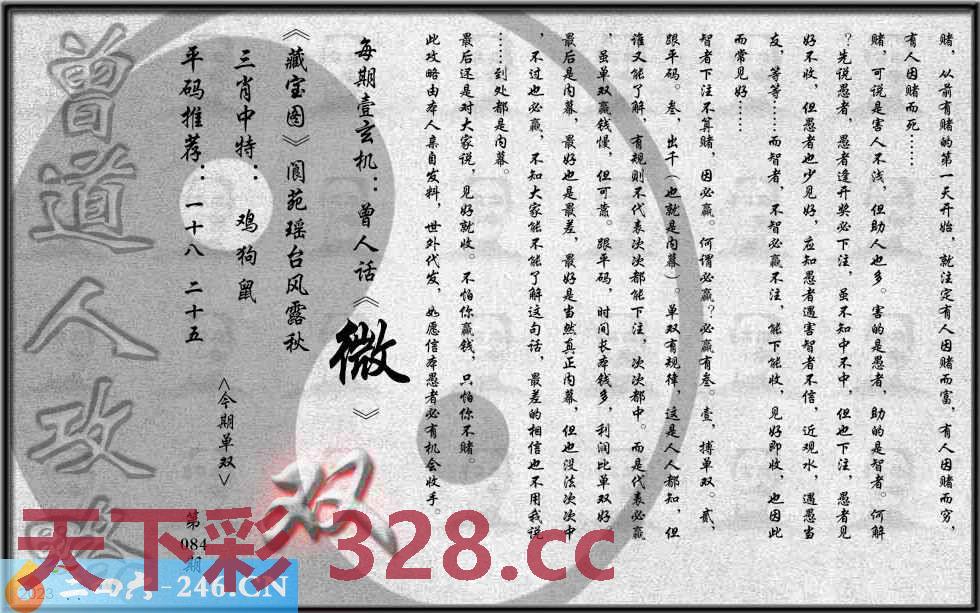 赌，从前有赌的第一天开始，就注定有人因赌而富，有人因赌而穷，
有人因赌而死……
赌，可说是害人不浅，但助人也多。害的是愚者，助的是智者。何解
？先说愚者，愚者逢开奖必下注，虽不知中不中，但也下注，愚者见
好不收，但愚者也少见好，应知愚者遇害智者不信，近观水，遇愚当
友，等等……而智者，不智必赢不注，能下能收，见好即收，也因此
而常见好……
智者下注不算赌，因必赢。何谓必赢？必赢有叁。壹，搏单双。贰，
跟平码。叁，出千（也就是内幕）。单双有规律，这是人人都知，但
谁又能了解，有规则不代表次次都能下注，次次都中。而是代表必赢
，虽单双赢钱慢，但可靠。跟平码，时间长本钱多，利润比单双好。
最后是内幕，最好也是最差，最好是当然真正内幕，但也没法次次中
，不过也必赢，不知大家能不能了解这句话，最差的相信也不用我说
……到处都是内幕。
最后还是对大家说，见好就收。不怕你赢钱，只怕你不赌。
此攻略由本人亲自发料，世外代发，如愿信本愚者必有机会收手。
每期壹玄机：曾人话《微》
《藏宝图》阆苑瑶台风露秋
三肖中特：鸡狗鼠
平码推荐：一十八 二十五
<今期单双>
双
第084期
曾道人攻略
天下彩 328.cc
二四六-246.CN
2023